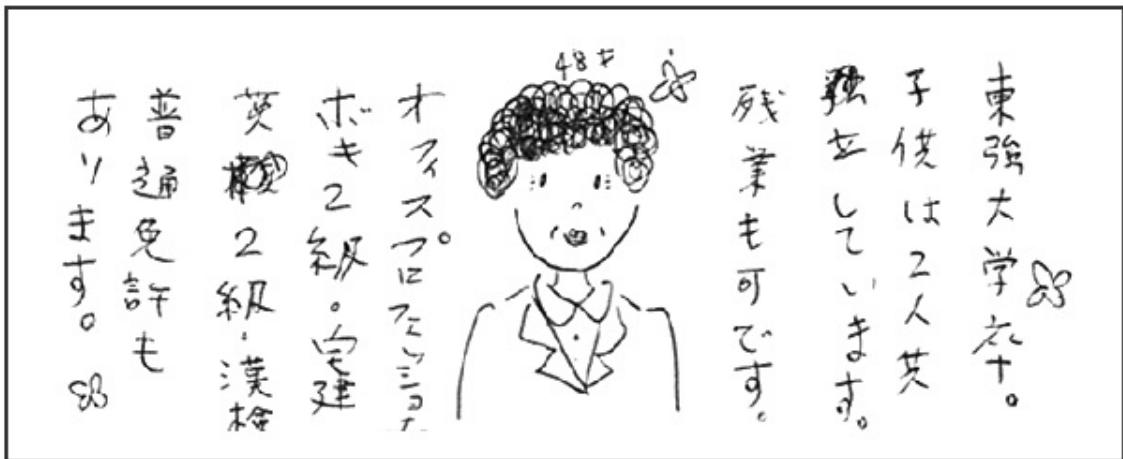 東強大学卒。
子供は2人共
独立しています。
残業も可です。
48才
オフィスプロフェッショナ
ボキ2級・宅建
英検2級・漢検
普通免許も
あります。